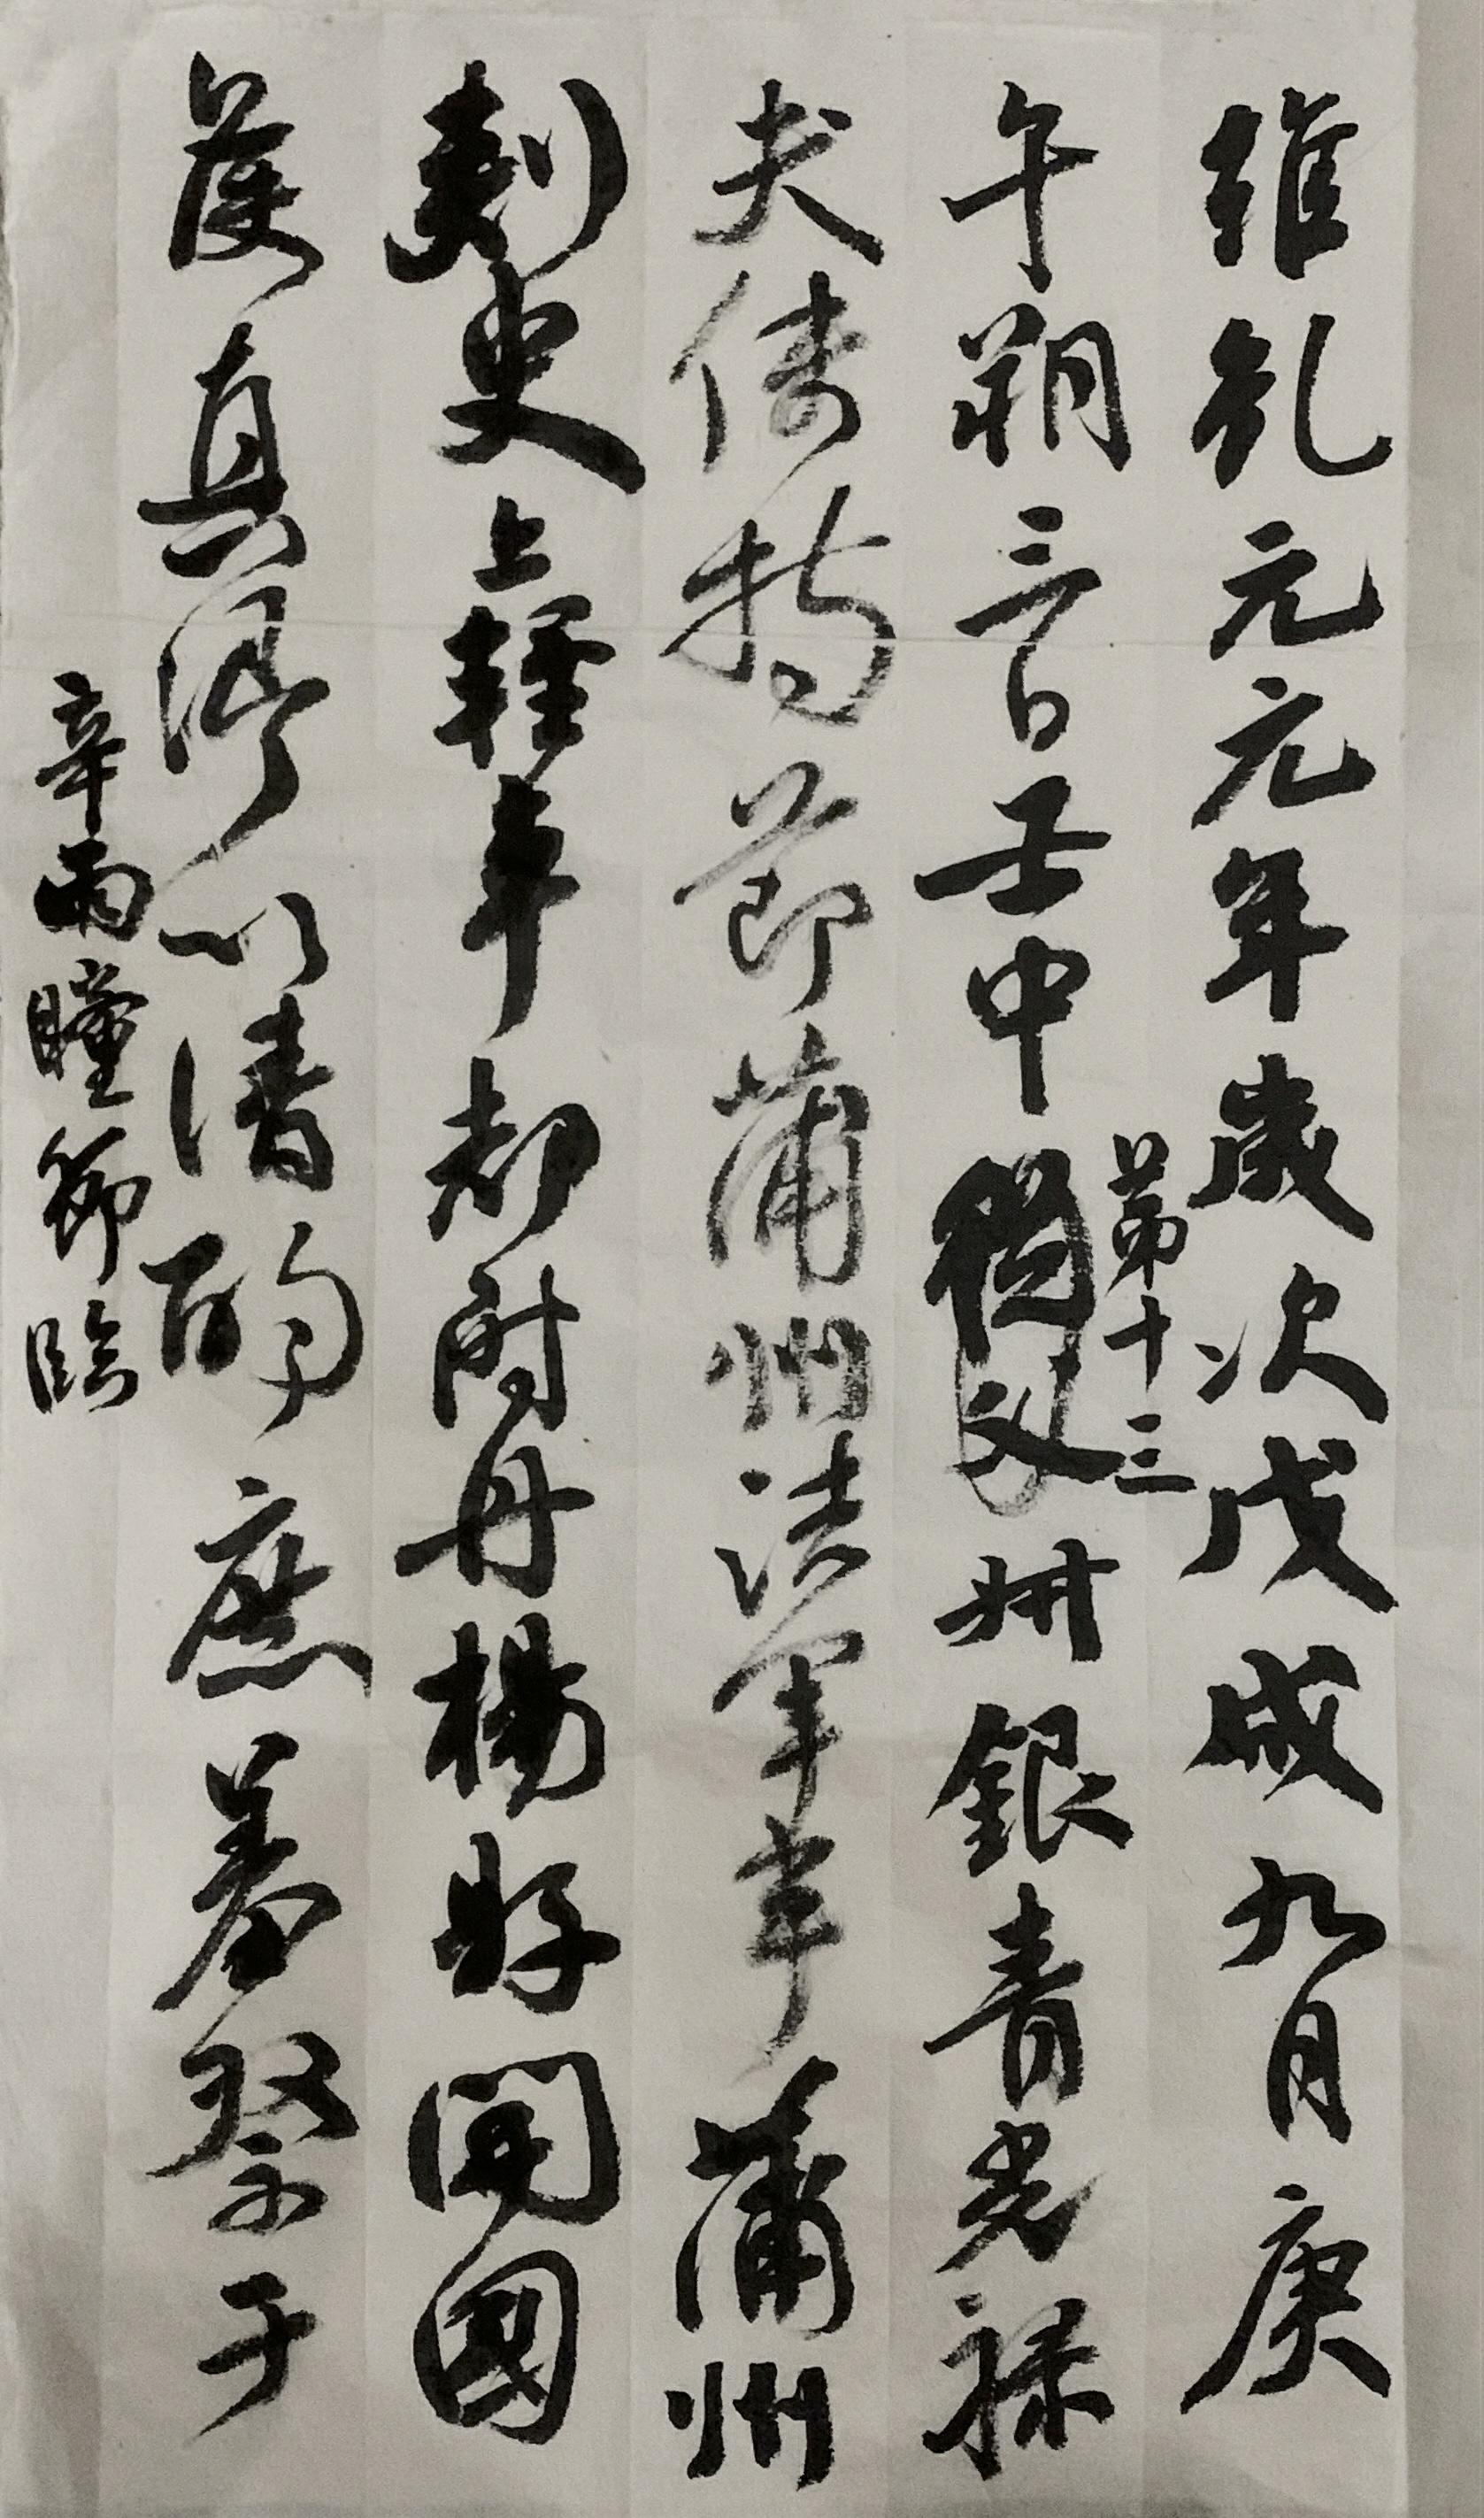 維乾元元年歲次戊戌九月庚
第十三
午朔三日壬申從父叔銀青光祿
夫使持節蒲州諸軍事蒲州
刺史上輕車都尉丹楊縣開國
侯真卿以清酌庶羞祭于
辛雨瞳節臨